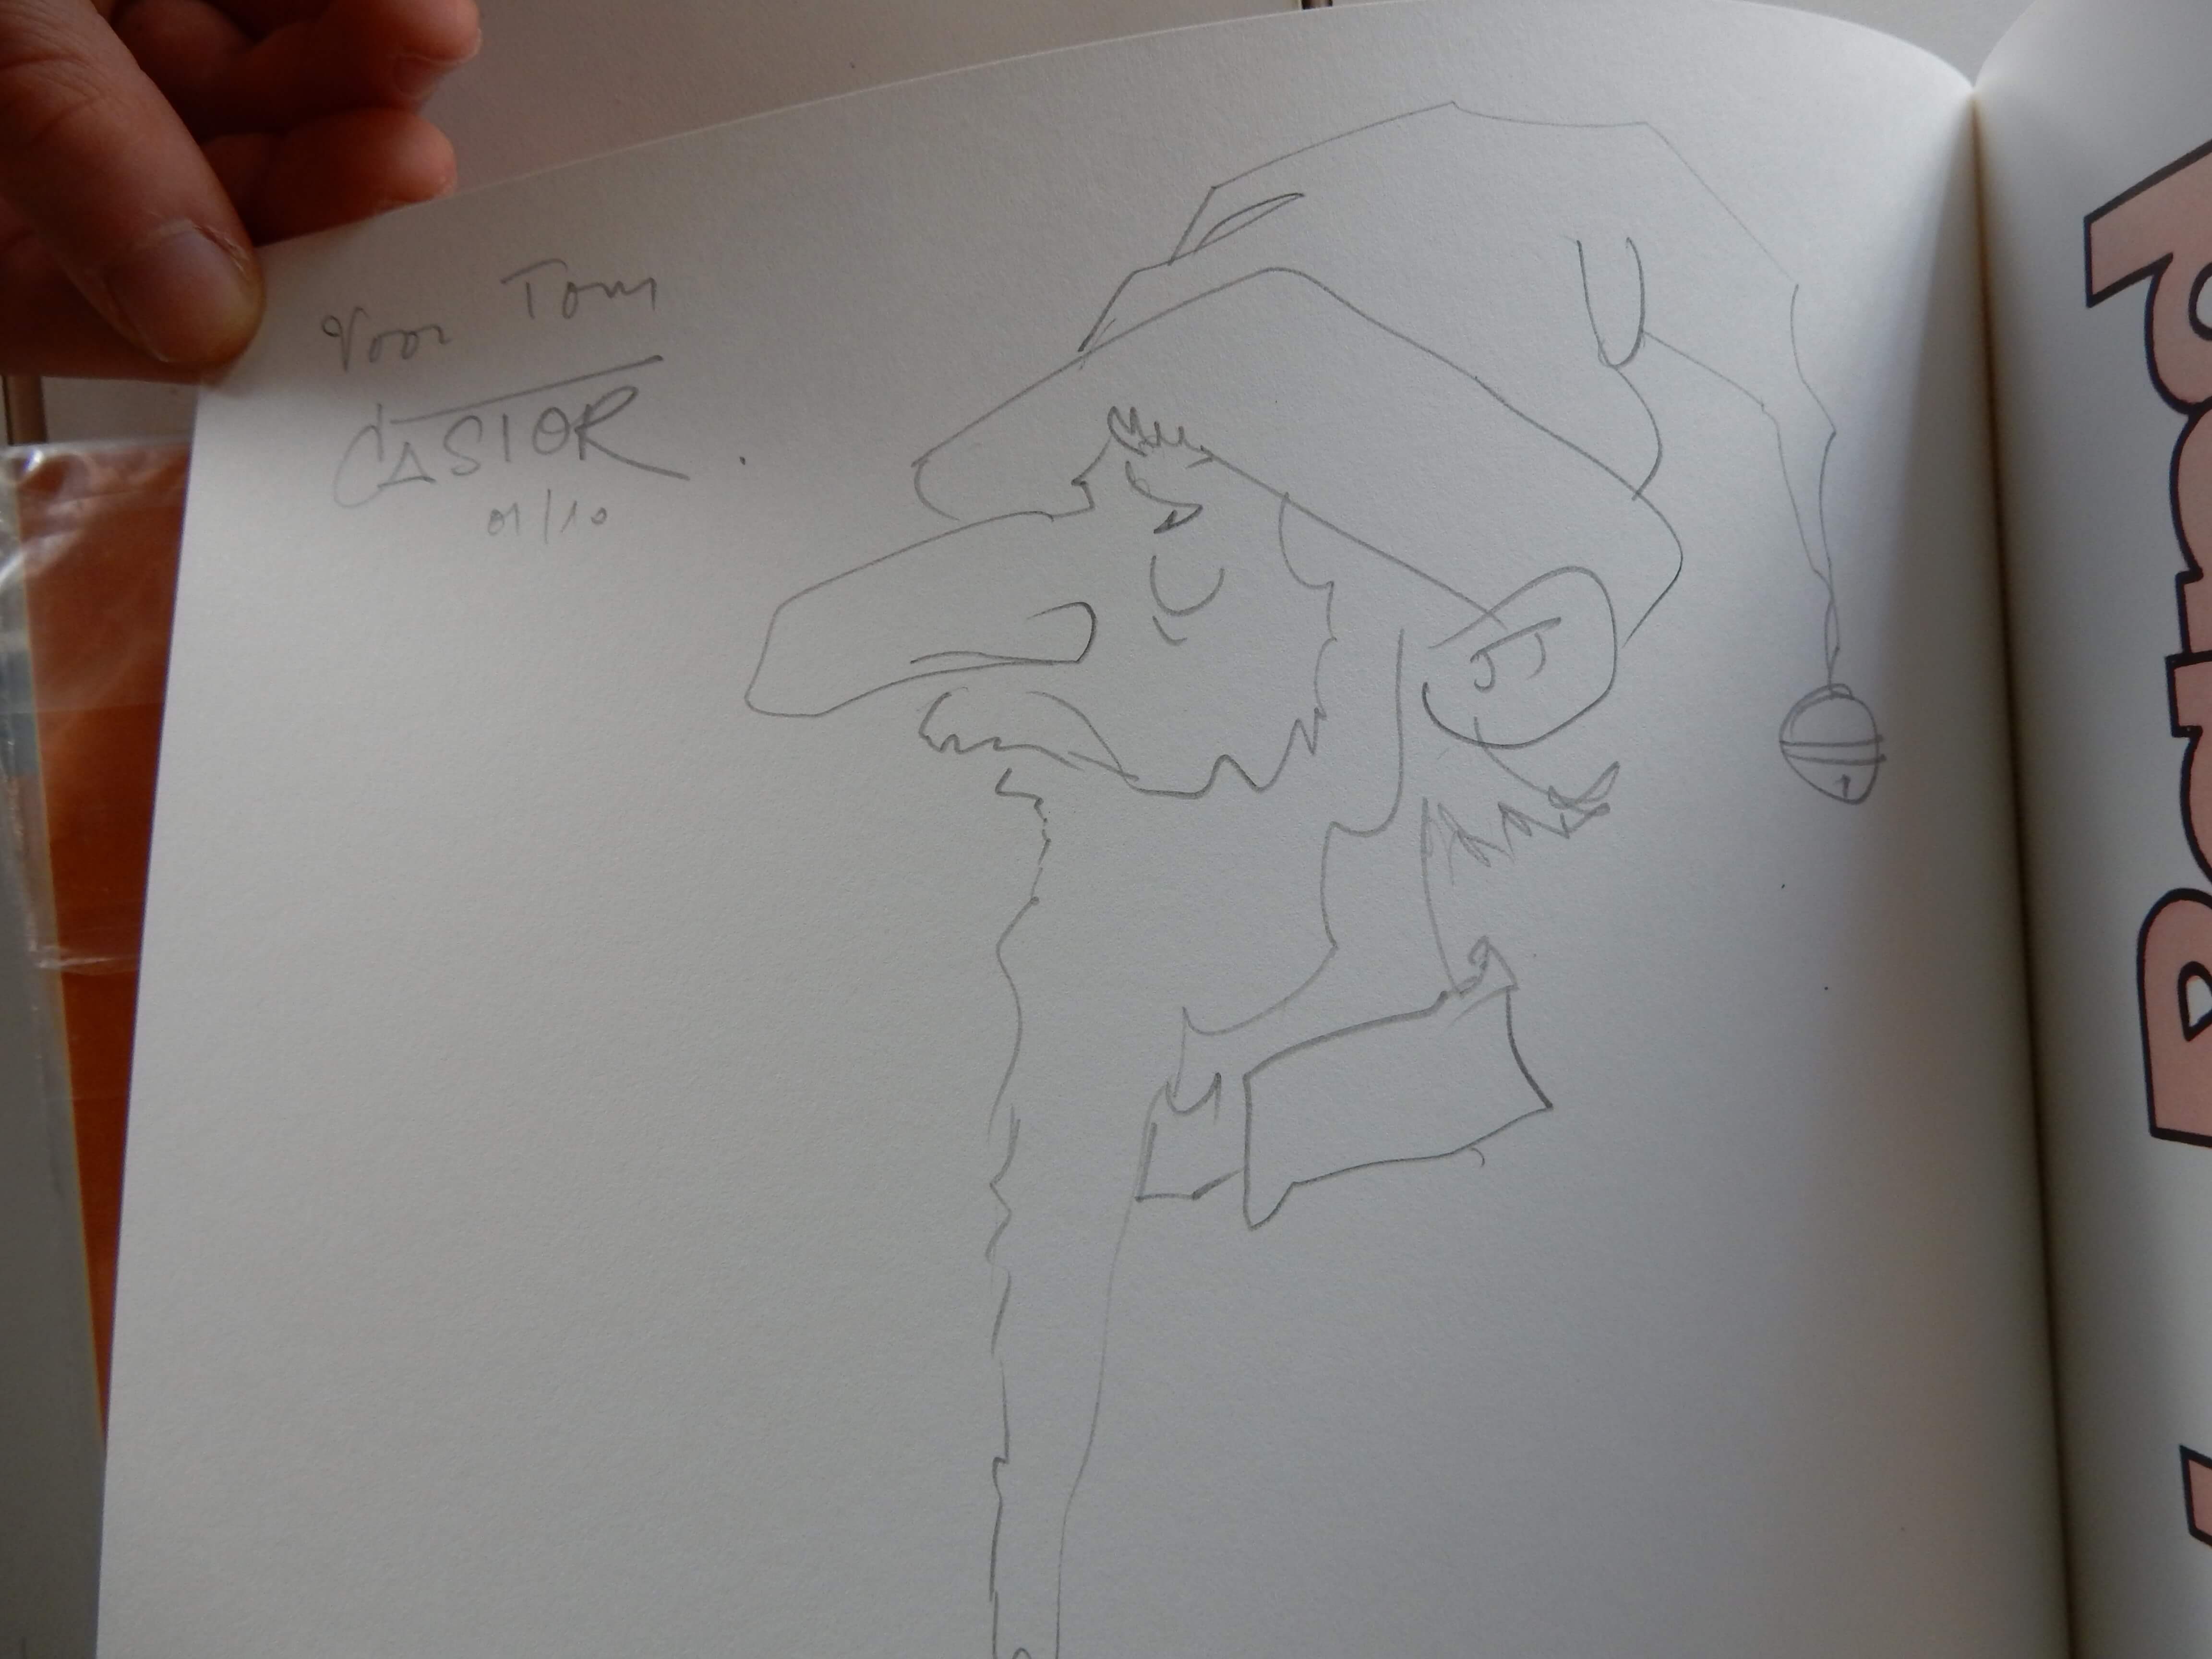 Voor Tom
CASTOR
01/10